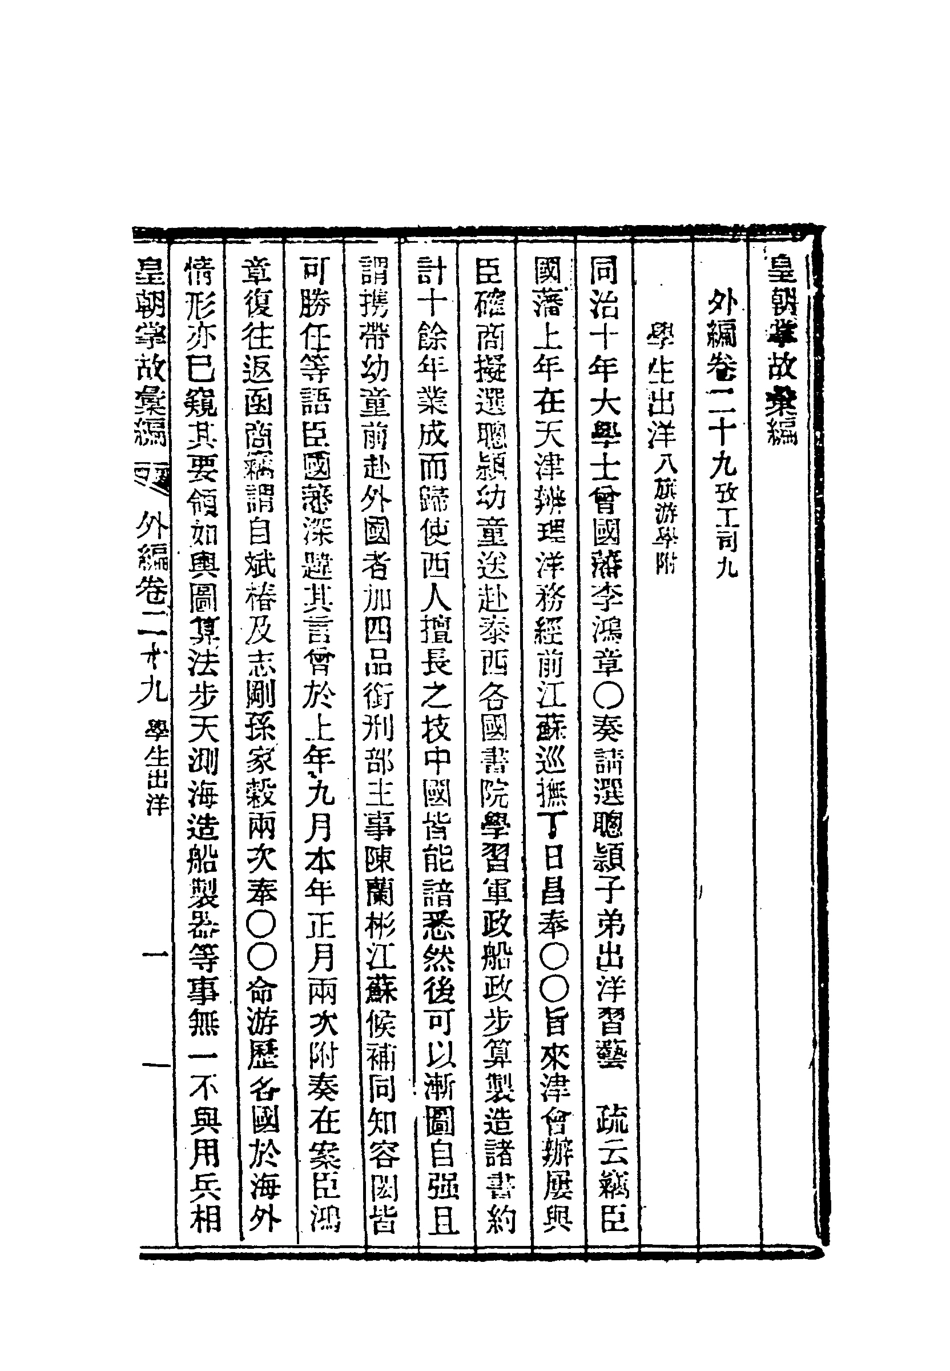 皇朝掌故彙編
外編卷二十九攷工司九
學生出洋八旗游學附
同治十年大學士曾國藩李鴻章〇奏請選聰穎子弟出洋習藝　疏云竊臣
國藩上年在天津辦理洋務經前江蘇巡撫丁日昌奉〇〇旨來津會辦屢與
臣確商擬選聰穎幼童送赴泰西各國書院學習軍政船政步算製造諸書約
計十餘年業成而歸使西人擅長之技中國皆能諳悉然後可以漸圖自强且
謂携帶幼童前赴外國者加四品銜刑部主事陳蘭彬江蘇候補同知容閎皆
可勝任等語臣國藩深韙其言曾於上年九月本年正月兩次附奏在案臣鴻
章復往返函商竊謂自斌椿及志剛孫家穀兩次奉〇〇命游歷各國於海外
情形亦已窺其要領如輿圖算法步天測海造船製器等事無一不與用兵相
皇朝掌故彙編　外編卷二十九　學生出洋　一